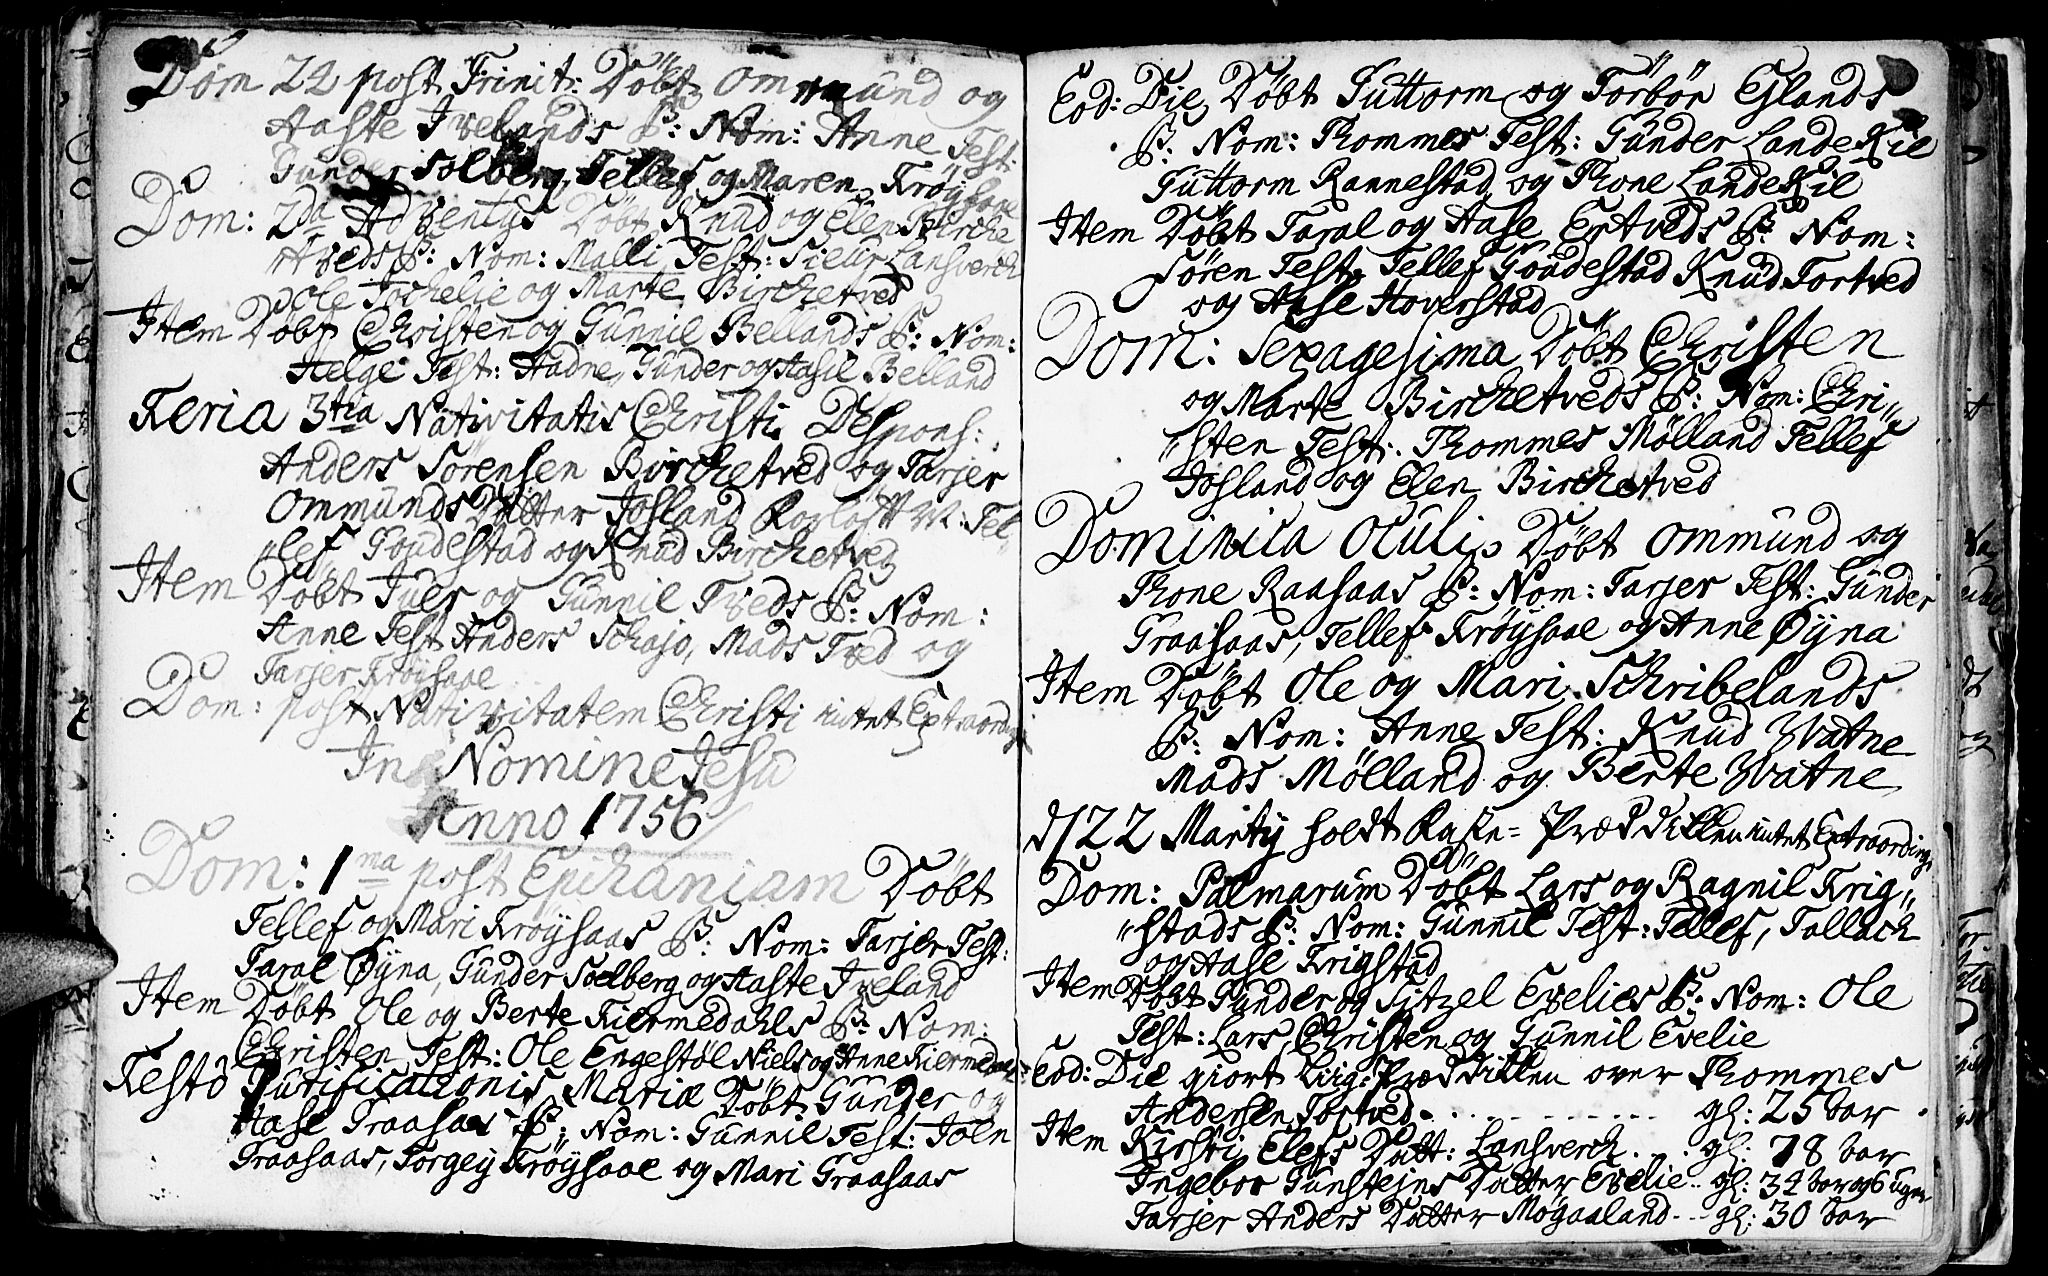 Dom 24 post Trinit: Döbt Ommund og
Aaste Ivelands B: Nom: Anne Test:
Gunder Solberg, Tellef og Maren Frøysaae
Dom: 2da Adventus Döbt Knud og Elen Birche
tveds B: Nom: Malli Test: Sieur Lansverch
Ole Tochelie og Marte Birchetved
Item Döbt Christen og Gunnil Bellands B: Nom:
Helge Test: Aadne, Gunder og Aasil Belland
Feria 3tia Nativitatis Christi Despons:
Anders Sørensen Birchetved og Tarjer
Ommunds Datter Josland Tel„
„lef Goudestad og Knud Birchetved
Item Döbt Iver og Gunnil Tveds B: Nom:
Anne Test Anders Schajo, Mads Tved og
Tarjer Frøysaae
Dom: post Nativitatem Christi intet Extraording
In Nomine Jesu
Anno 1756
Dom: 1ma post Epiphaniam Döbt
Tellef og Mari Frøysaas B: Nom: Tarjer Test:
Taral Øyna, Gunder Soelberg og Aaste Iveland
Item Döbt Ole og Berte Fiermedahls B: Nom:
Christen, Test: Ole Engestøl Niels og Anne Fiermedahl
Festo Purificationis Mariæ Döbt Gunder og
Aase Graasaas B: Nom: Gunnil Test: Joen
Graasaas, Torgey Frøysaae og Mari Graasaas
Eod: Die Döbt Guttorm og Torbör Eslands
B: Nom: Thommes Test: Gunder LandeKil
Guttorm Rannestad og Thone LandeKil
Item Döbt Taral og Aase Ertveds B: Nom:
Søren Test, Tellef Goudestad Knud Tortved
og Aase Hoverstad
Dom: Sexagesima Döbt Christen
og Marte Birchetveds B: Nom: Chri„
„sten Test: Thommes Mølland Tellef
Josland og Elen Birchetved
Dominica Oculi, Döbt Ommund og
Thone Raasaas B: Nom: Tarjer Test: Gunder
Graasaas, Tellef Frøysaae og Anne Øyna
Item Döbt Ole og Mari Schribelands
B: Nom: Anne Test: Knud Vatne
Mads Mølland og Berte Vatne
d 22 Martij holdt Faste= Prædicken intet Extraording
Dom: Palmarum Döbt Lars og Ragnil Frig„
„stads B: Nom: Gunnil Test: Tellef, Tallach
og Aase Frigstad
Item Döbt Gunder og Sitzel Evelies B: Nom: Ole
Test: Lars Christen og Gunnil Evelie
Eod: Die giort Liig: Prædicken over Thommes
Andersen Tortved . . . gl: 25 aar
Item Kirsti Elefs Datt: Lansverch . . gl: 78 aar
Ingebor Gunsteins Datter Evelie . . gl: 34 aar og 6 uger
Tarjer Anders Datter Møgaaland . . gl: 30 aar